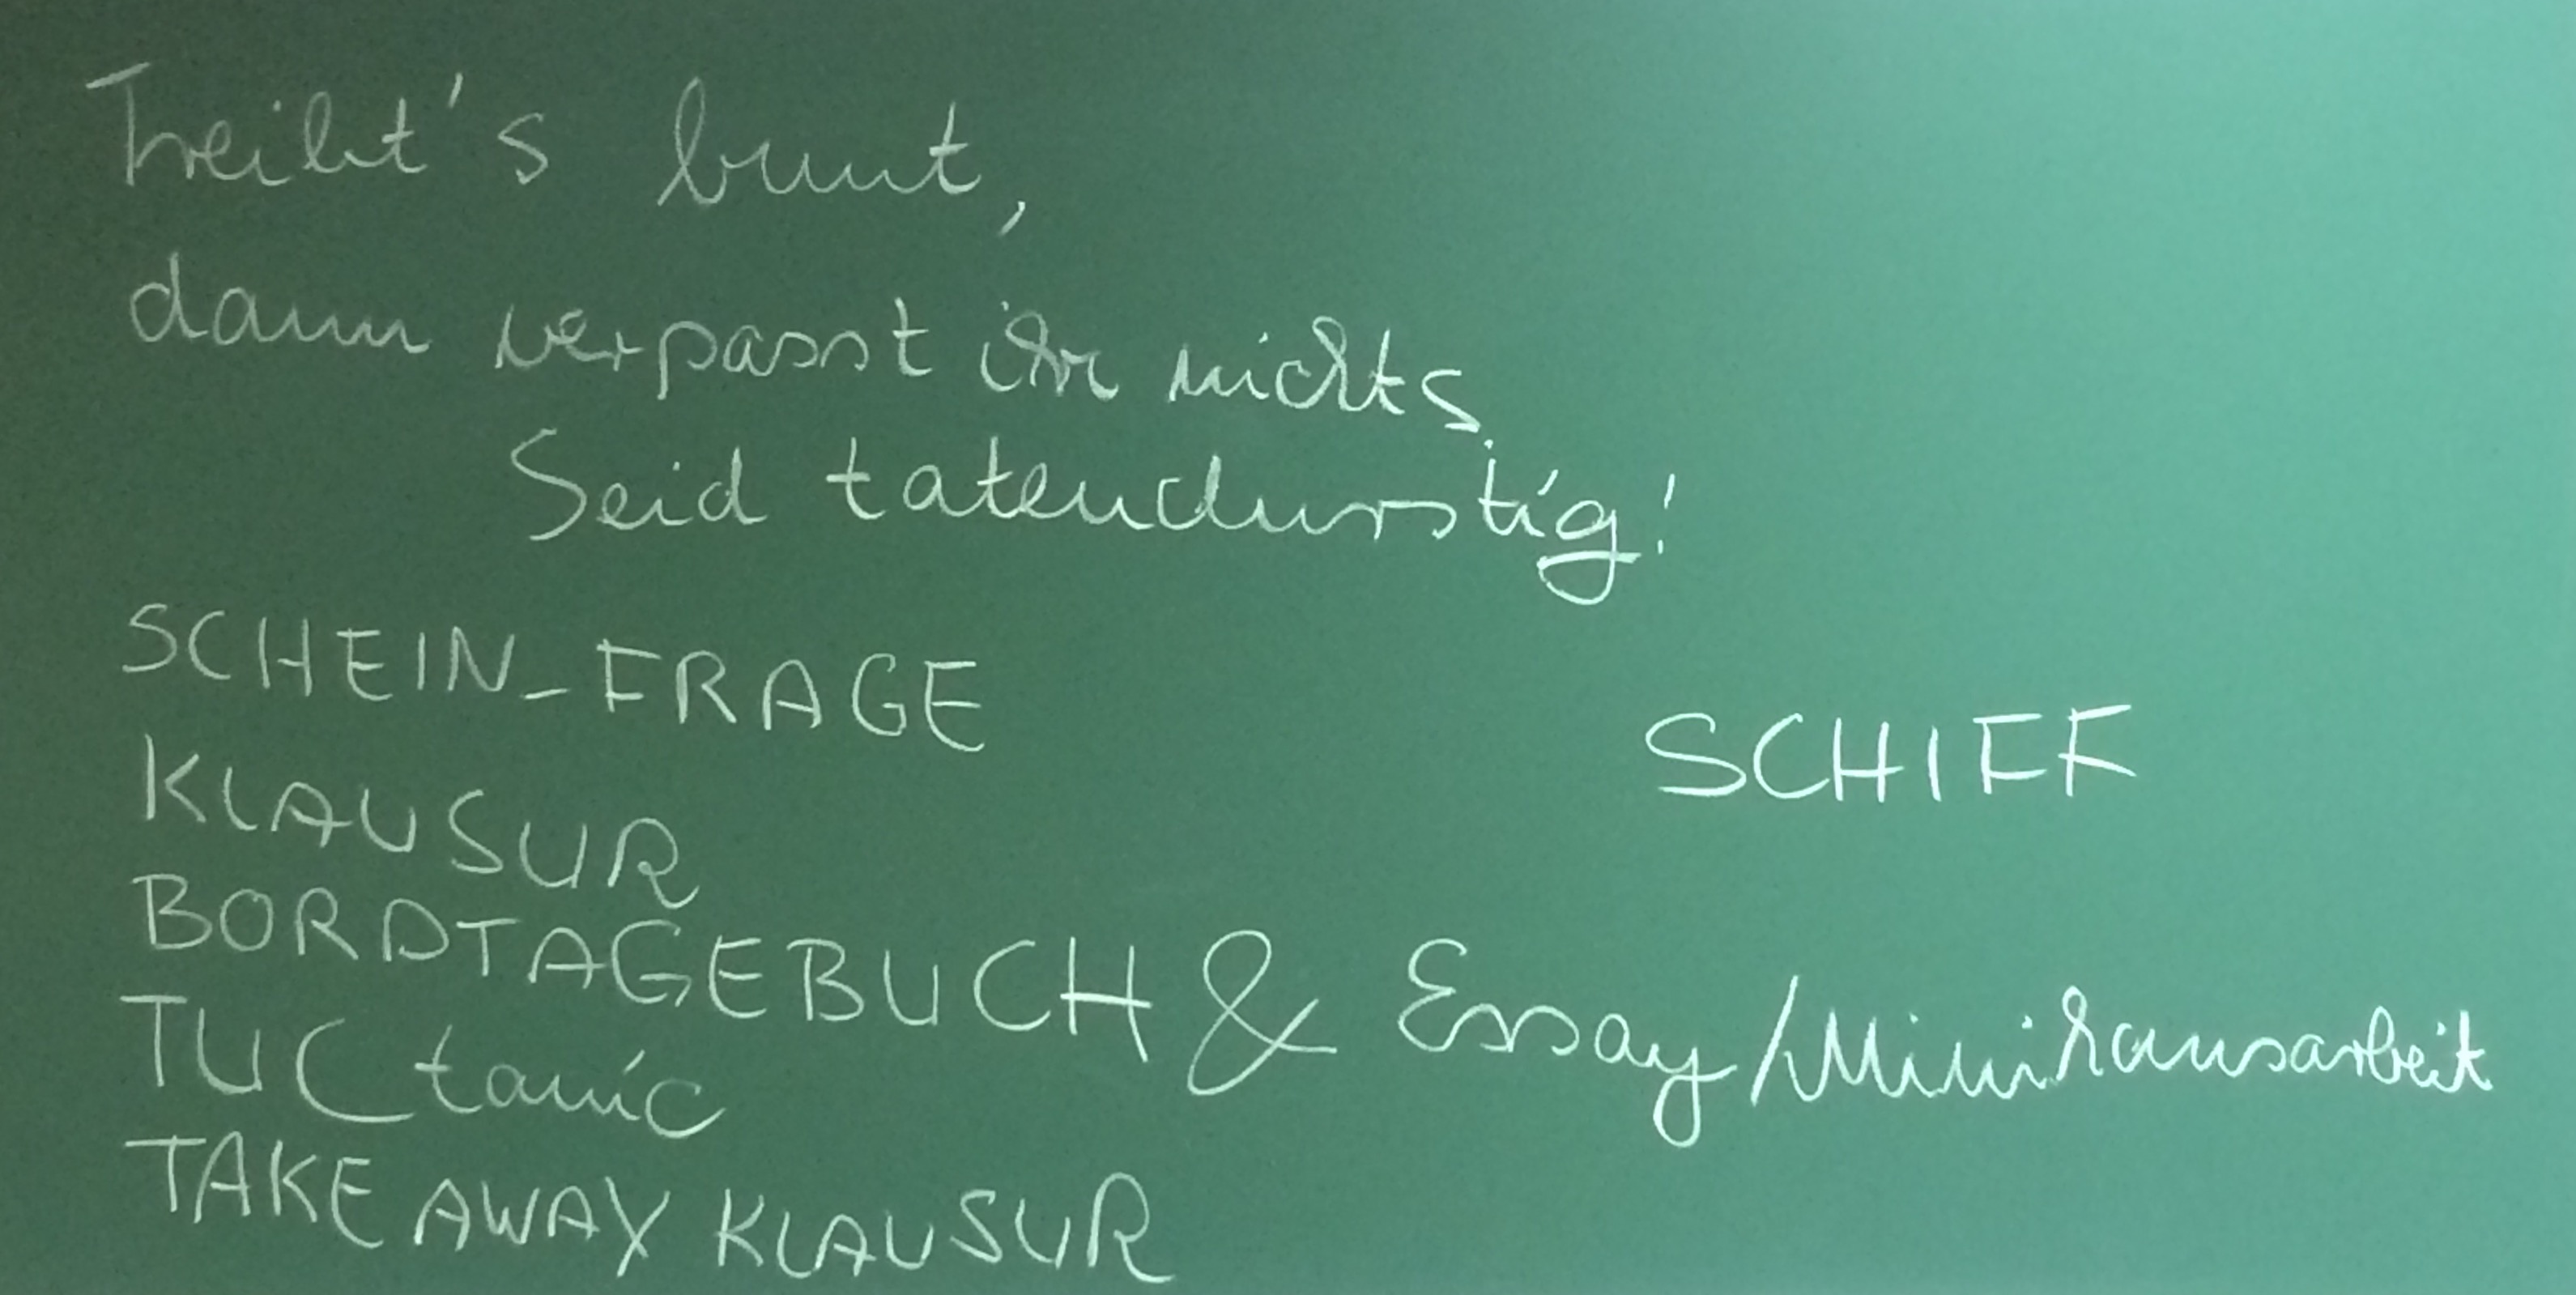 Treibt's bunt,
dann verpasst ihr nichts.
Seid tatendurstig!
SCHEIN-FRAGE
SCHIFF
KLAUSUR
BORDTAGEBUCH & Essay/Minihausarbeit
TUCtanic
TAKE AWAY KLAUSUR